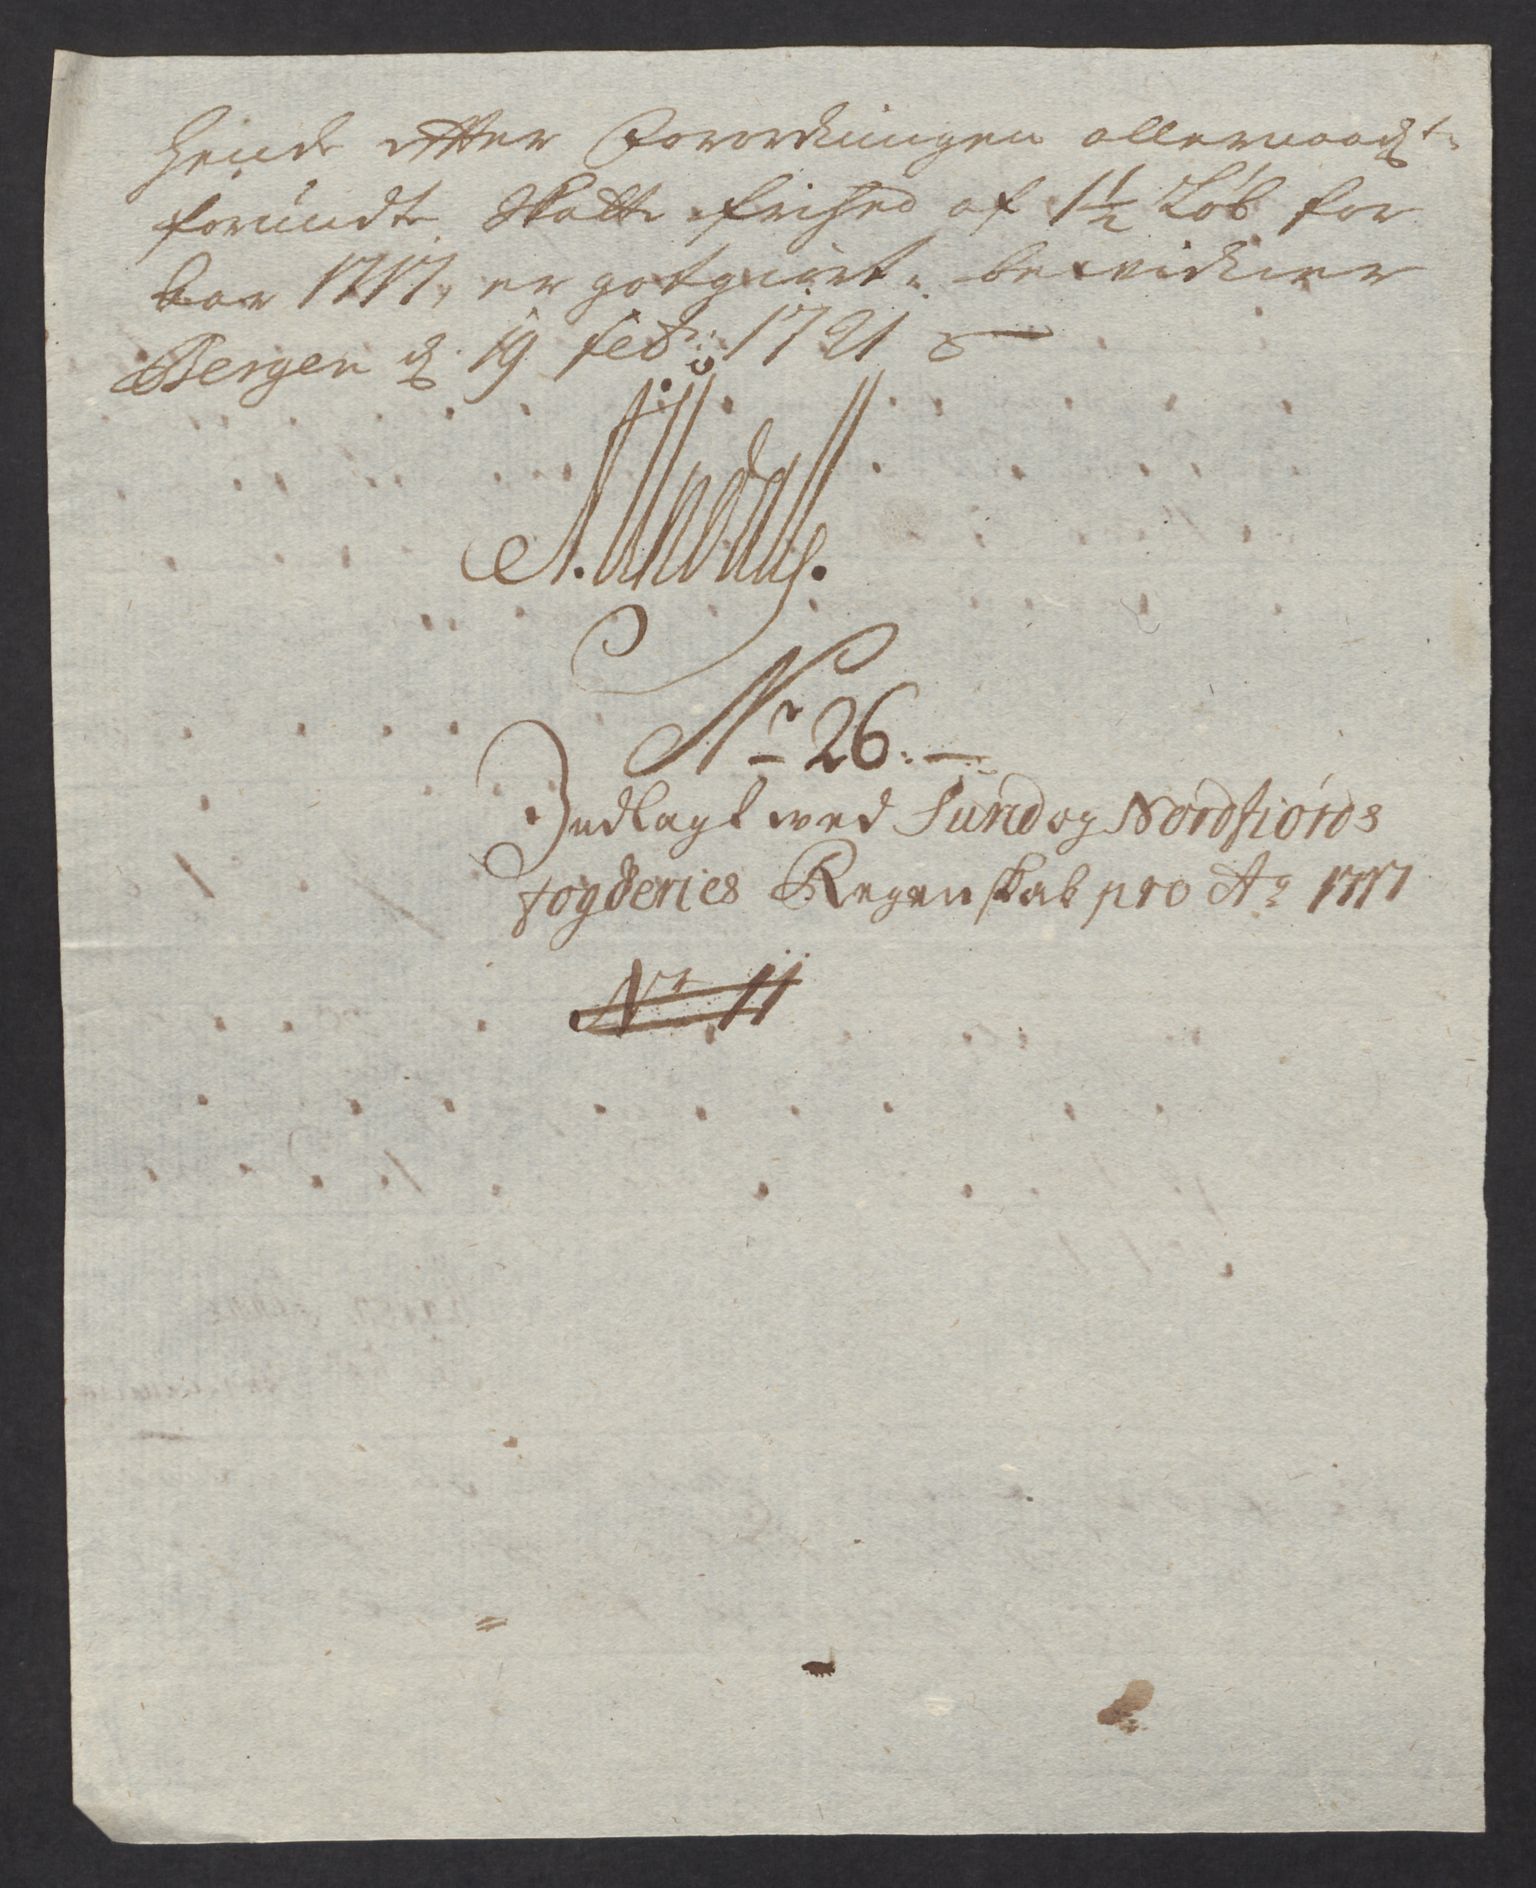 hende efter Forordningen allernaadst
forundte Skatte frihed af 1½ Løb for
Aar 1717, er godtgiort, bevidner
Bergen d. 19 feb: 1721
Nr 26.
Indlagt ved Sund og Nordfiords
fogderies Regenskab pro Ao 1717
Nr 11